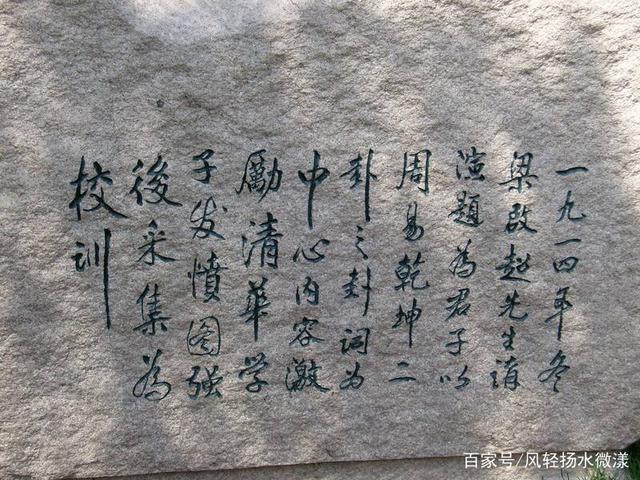 一九一四年冬
梁启超先生講
演題為君子以
周易乾坤二
卦之卦词为
中心内容激
勵清華学
子发憤图强
後采集為
校训
百家号/风轻扬水微漾